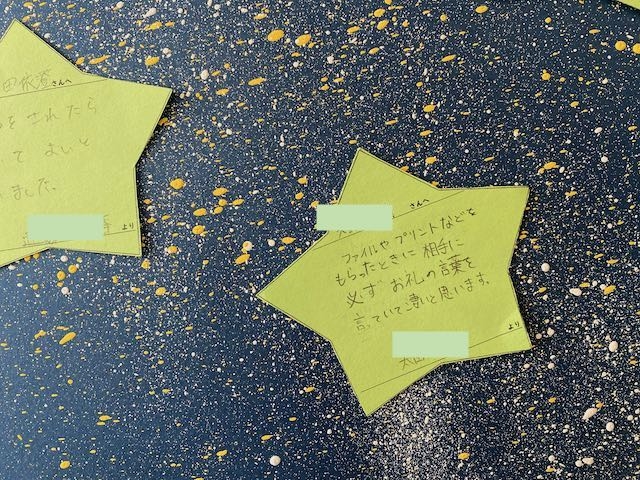 さんへ
をされたら
てよいと
いました。
より
さんへ
ファイルやプリントなどを
もらったときに相手に
必ずお礼の言葉を
言ていて凄いと思います。
より